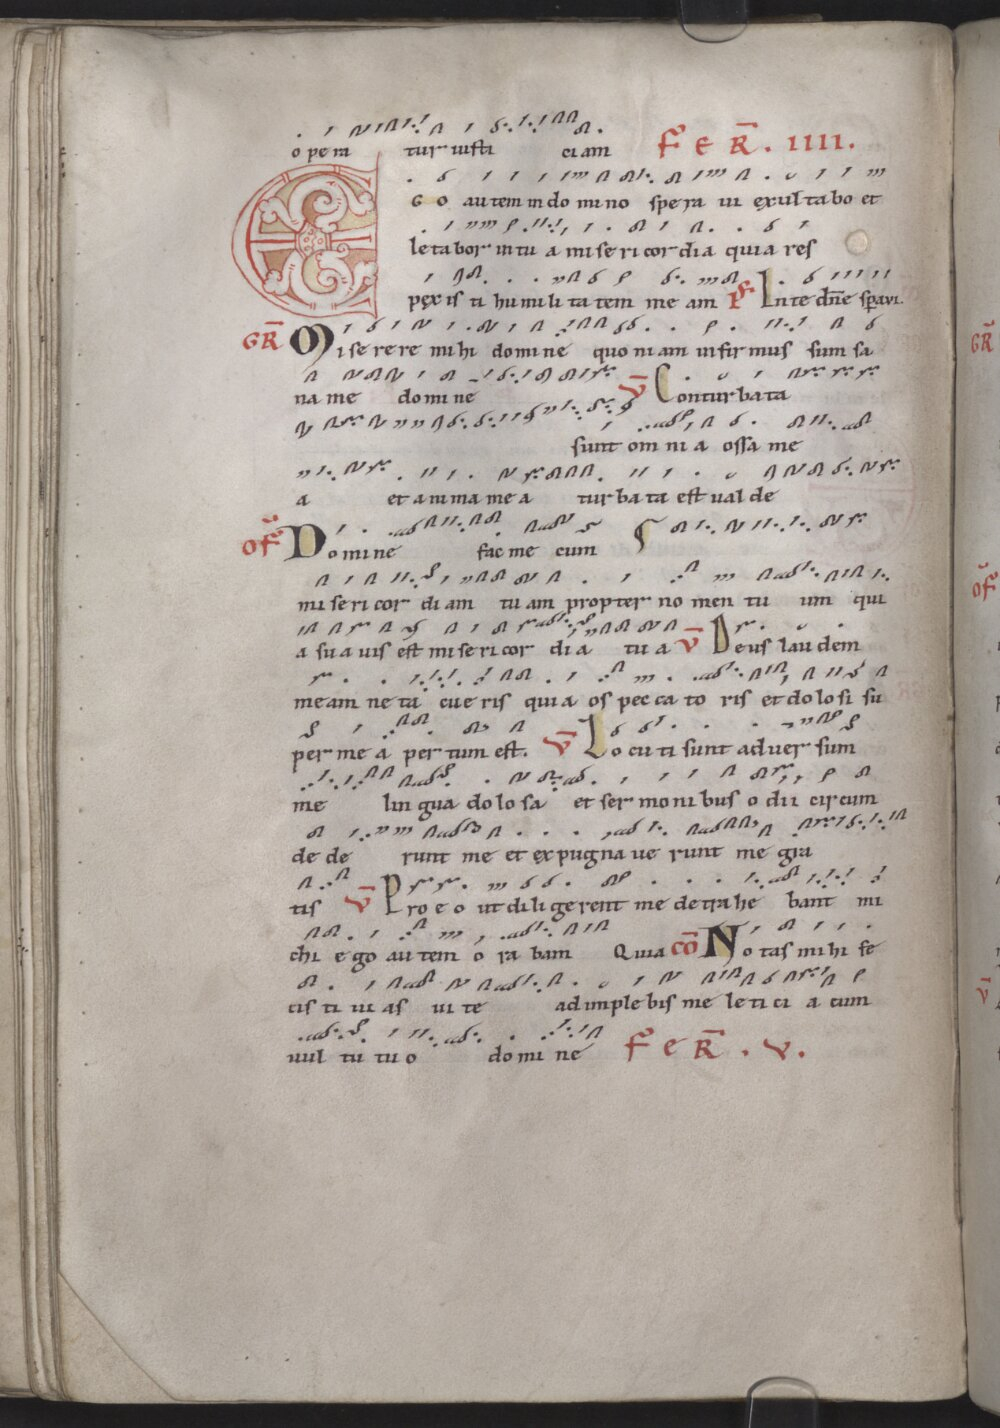 opera tur iusti ciam FER. IIII.
EGO autem in domino spera ui exultabo et
letabor in tu a misericordia quia res
pexisti humilitatem meam Ps In te dñe speravi.
GR Miserere mihi domine quoniam infirmus sum sa
na me domine V Conturbata
sunt omnia ossa me
a et anima mea turbata est ualde
OF Domine fac me cum
misericordiam tuam propter nomen tu um qui
a suauis est misericordia tua V Deus laudem
meam ne ta cueris quia os peccatoris et dolosi su
per me a pertum est. V Locuti sunt aduersum
me lingua dolosa et sermonibus odii circum
dede runt me et expugnauerunt me gra
tis V Pro eo ut diligerent me detrahe bant mi
chi ego autem o ra bam Quia CO Notas mihi fe
cisti uias uite adimplebis me leticia cum
uul tu tuo domine FER. V.
GR
OF
V